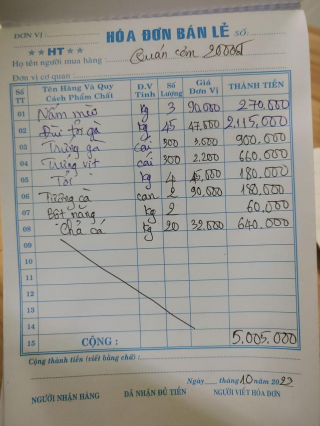 ĐƠN VỊ : HÓA ĐƠN BÁN LẺ SỐ:
★★ HT ★★
Họ tên người mua hàng : Quán cơm 2000đ
Đơn vị cơ quan :
Số TT Tên Hàng Và Quy Cách Phẩm Chất Đ.V Tính Số Lượng Giá Đơn Vị THÀNH TIỀN
01 Nấm mỡ kg 3 90.000 270,000
02 kg 45 47,000 2,115,000
03 Trứng gà cái 300 3,000 900,000
04 Trứng vịt cái 300 2.200 660,000
05 Tỏi kg 4 45,000 180.000
06 Tương cà can 2 90,000 180,000
07 Bột năng kg 2 60.000
08 Chả cá kg 20 32,000 640.000
09
10
11
12
13
14
15 CỘNG : 5.005.000
Cộng thành tiền (viết bằng chữ) :
Ngày tháng 10 năm 2023
NGƯỜI NHẬN HÀNG ĐÃ NHẬN ĐỦ TIỀN NGƯỜI VIẾT HÓA ĐƠN